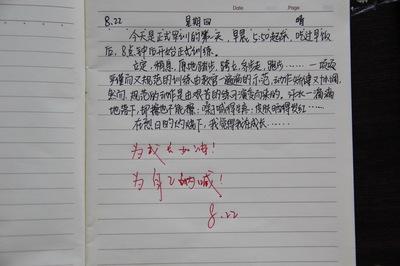 Date
Page
8.22 星期四 晴
今天是正式军训的第一天，早晨5:50起床，吃过早饭
后，8点钟后开始正式训练。
立定，稍息，原地踏步，跨立，齐步走，跑步……一项项
严谨而又规范的训练由教官一遍遍的示范，动作矫健又协调，
然而，规范的动作是由艰苦的练习演变而来的。汗水一滴滴
地落下，却擦也不能擦；嗓子喊得生疼，皮肤晒得发红……
在烈日的灼烧下，我觉得我在成长……
为成长加油！
为自己呐喊！
8.22